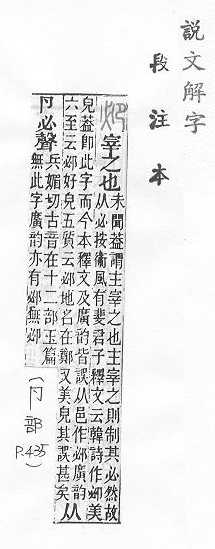 說文解字
段注本
宰之也
未聞葢謂主宰之也主宰之則制其必然故
从必按衞風有斐君子釋文云韓詩作𠨘美
皃葢卽此字而今本釋文及廣韵皆誤从邑作邲廣韵
六至云邲好皃五質云邲地名在鄭又美皃其誤甚矣
从
卪必聲
兵媚切古音在十二部玉篇
無此字廣韵亦有邲無𠨘
(卩部
P.435)